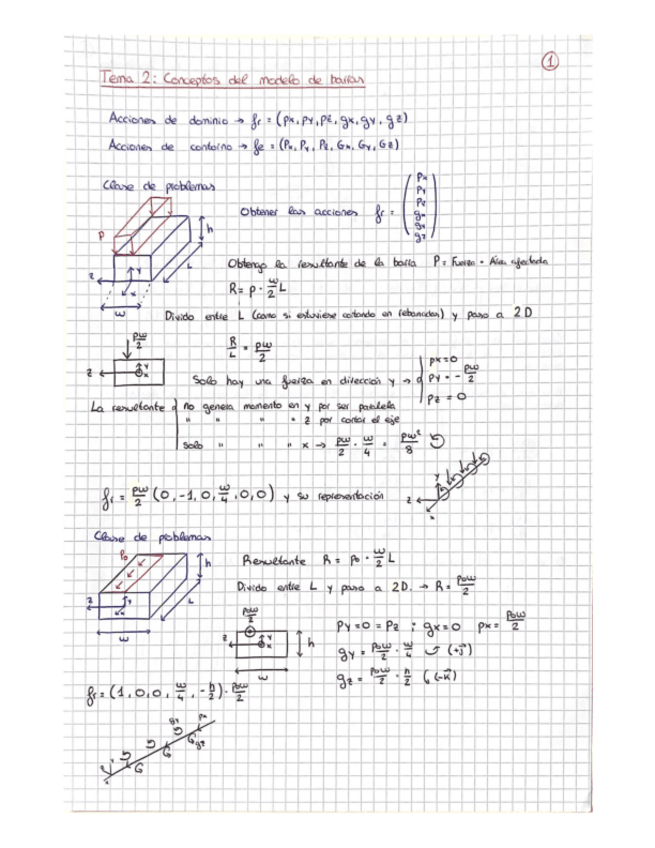 1
Tema 2: Conceptos del modelo de barras
Acciones de dominio → fr = (px, py, pz, gx, gy, gz)
Acciones de contorno → fe = (Px, Py, Pz, Gx, Gy, Gz)
Clase de problemas
Obtener las acciones fr = (px py pz gx gy gz)
P h L w z y x
Obtengo la resultante de la barra P = Fuerza · Área afectada
R = p · w/2 L
Divido entre L (como si estuviese cortando en rebanadas) y paso a 2D
R/L = pw/2
pw/2 z y x
Solo hay una fuerza en dirección y → { px = 0
py = - pw/2
pz = 0
La resultante { no genera momento en y por ser paralela
" " " " z por cortar el eje
Solo " " " x → pw/2 · w/4 = pw²/8
fr = pw/2 (0, -1, 0, w/4, 0, 0) y su representación
y z x
Clase de problemas
Po h L w z y x
Resultante R = po · w/2 L
Divido entre L y paso a 2D. → R = pow/2
pow/2 z y x h w
py = 0 = pz ; gx = 0 px = pow/2
gy = pow/2 · w/4 (+j)
gz = pow/2 · h/2 (-k)
fr = (1, 0, 0, w/4, -h/2) · pow/2
gy px gz